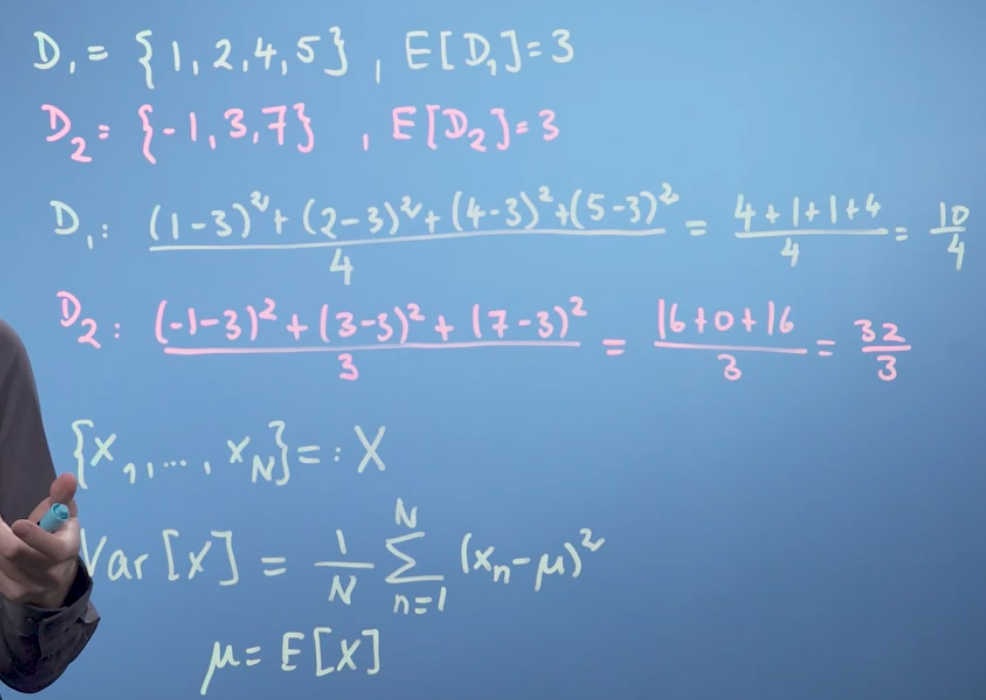 D₁ = {1, 2, 4, 5}, E[D₁] = 3
D₂ = {-1, 3, 7}, E[D₂] = 3
D₁: ((1-3)² + (2-3)² + (4-3)² + (5-3)²)/4 = (4+1+1+4)/4 = 10/4
D₂: ((-1-3)² + (3-3)² + (7-3)²)/3 = (16+0+16)/3 = 32/3
{x₁, ..., x_N} =: X
Var[X] = 1/N ∑_{n=1}^{N} (x_n - μ)²
μ = E[X]